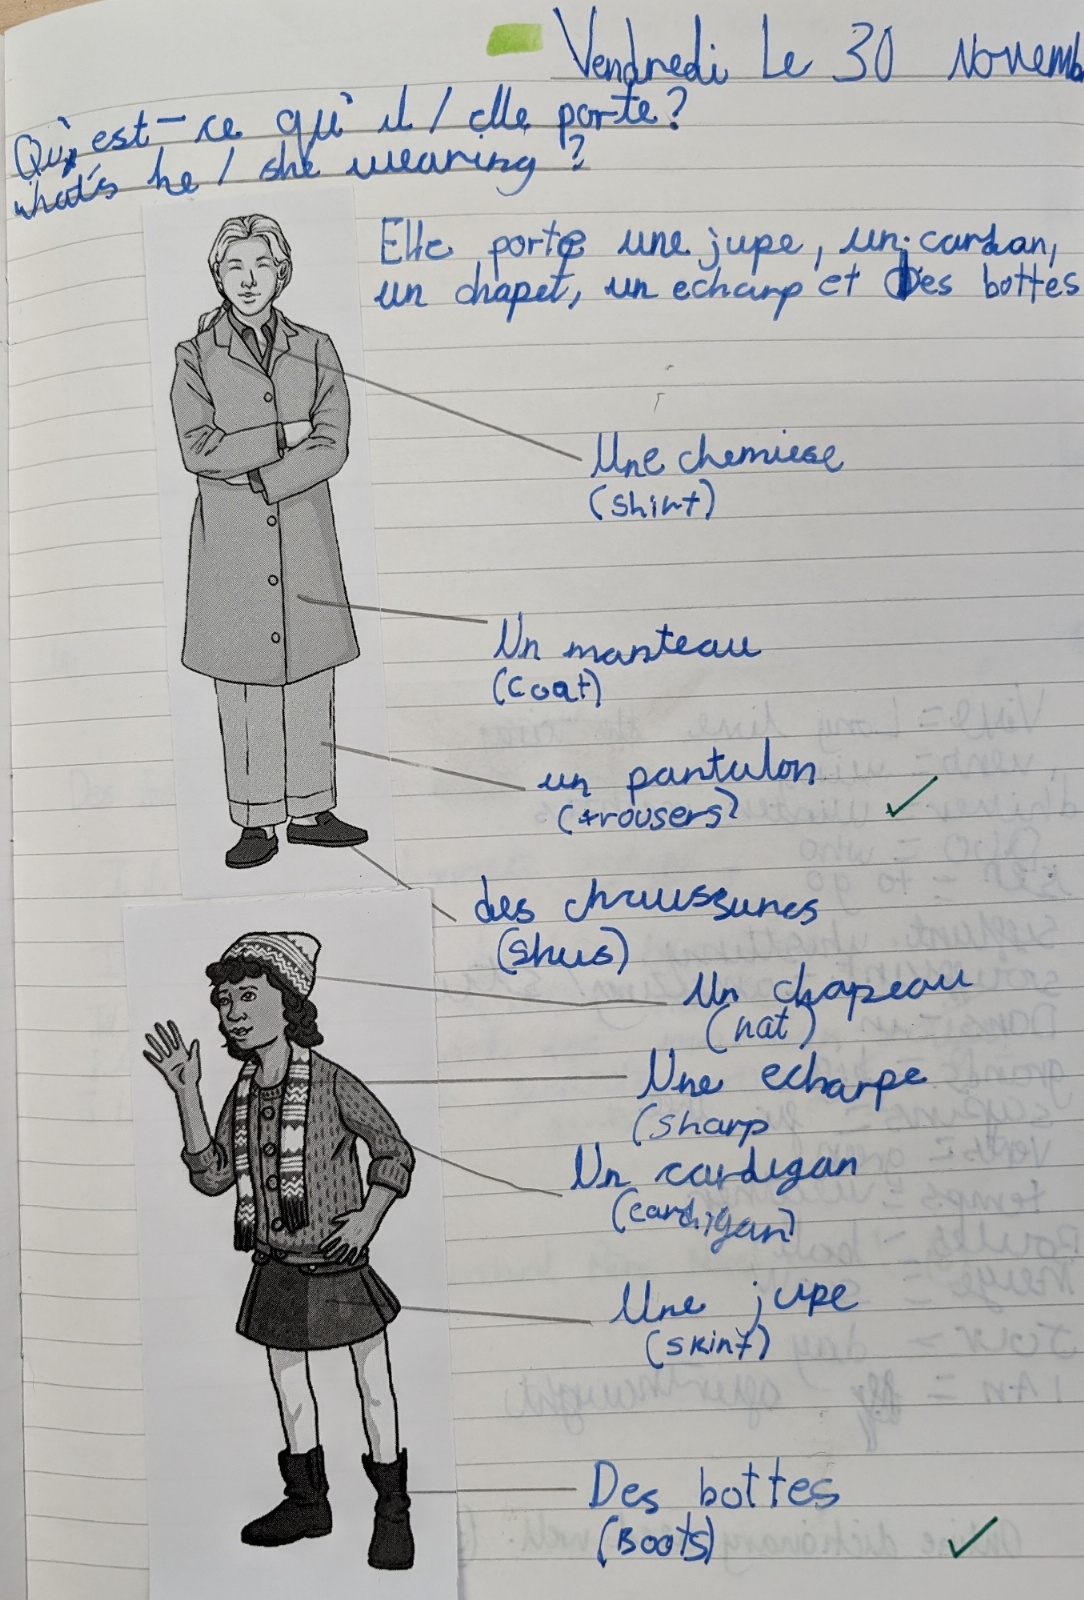 Vendredi Le 30 Novemb
Qu'est-ce qu'il / elle porte?
what's he / she wearing?
Elle porte une jupe, un cardan,
un chapet, un echarp et Des bottes
Une chemiese
(shirt)
Un manteau
(coat)
un pantulon
(trousers)
des chaussures
(shus)
Un chapeau
(hat)
Une echarpe
(sharp
Un cardigan
(cardigan)
Une jupe
(skirt)
Des bottes
(Boots)